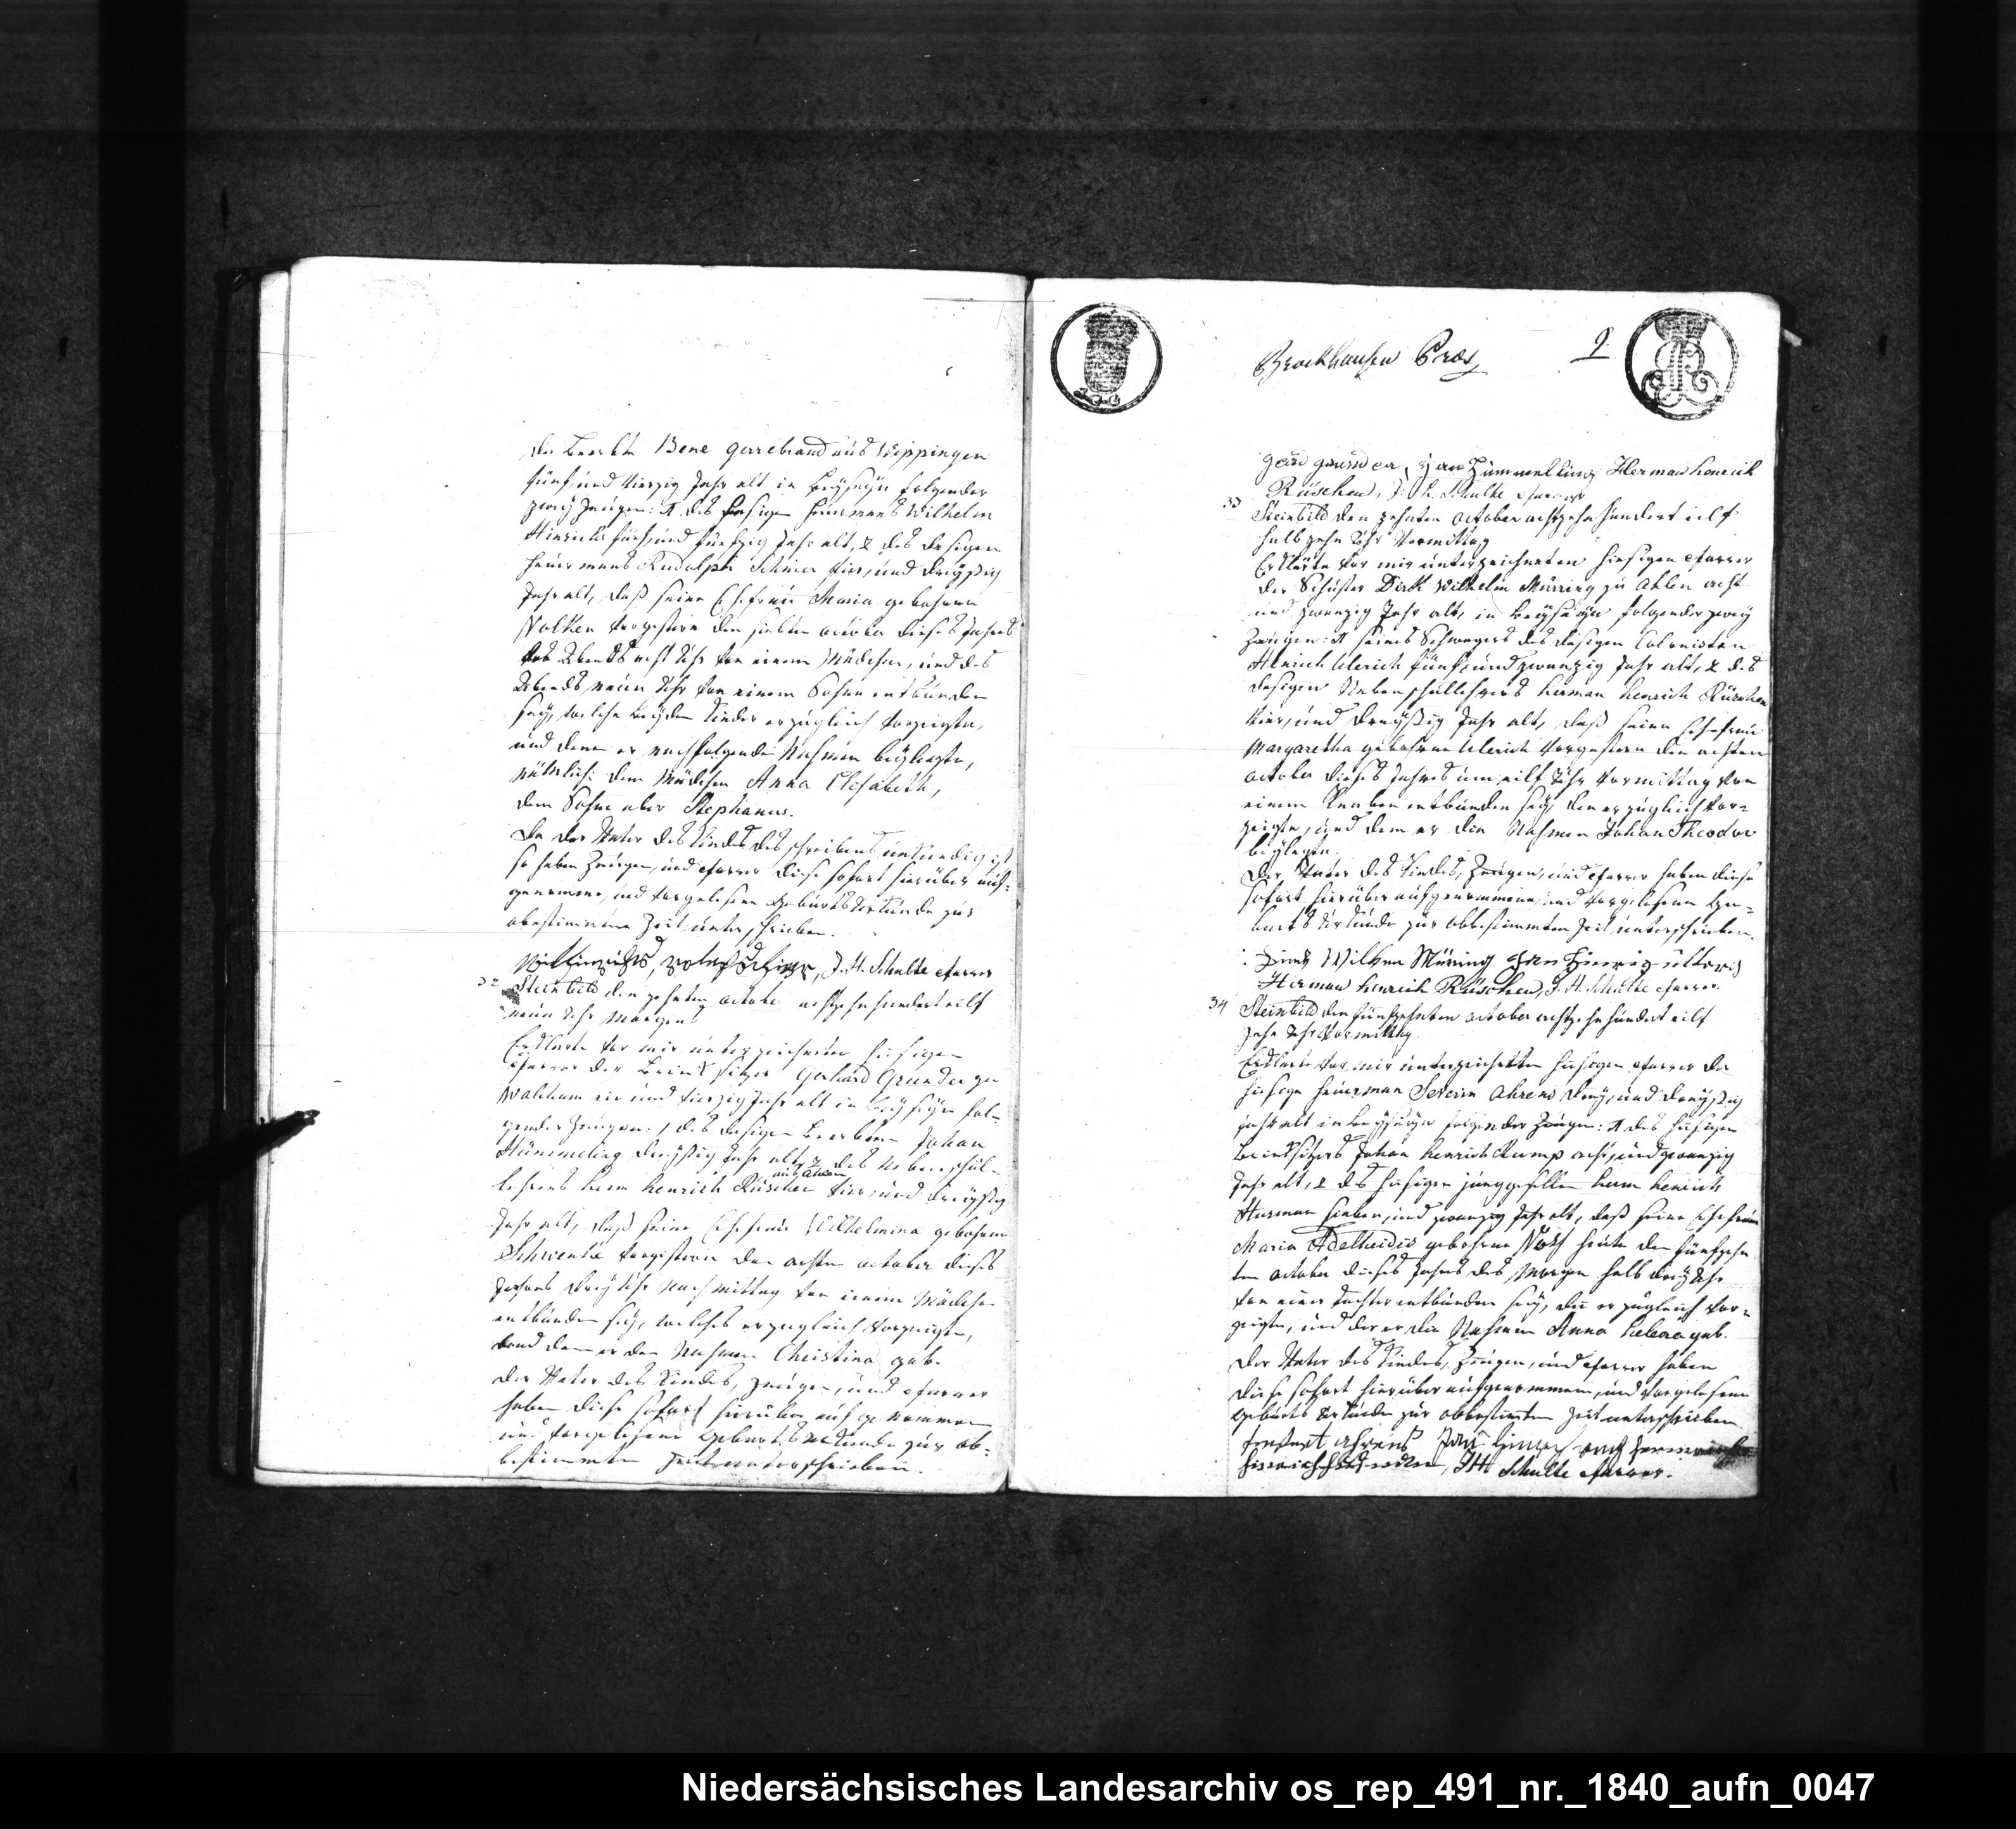 der Beerbte Bene Gerrebrand aus Wippingen
fünf, und vierzig Jahr alt in Beyseyn folgender
zwey Zeugen: 1 des hiesigen Heuermans Wilhelm
Hinrichs fünf, und fünfzig Jahr alt, 2 des dasigen
Heuermans Rudolph Schmer vier, und dreyßig
Jahr alt, daß seine Ehefrau Maria gebohrne
Nolken vorgestern den siebten october dieses Jahres
des Abends acht Uhr von einem Mädchen, und des
Abends neun Uhr von einem Sohne entbunden
sey, welche beyden Kinder er zugleich vorzeigte,
und denen er nachfolgende Nahmen beylegte,
nämlich: dem Mädchen Anna Elisabeth,
dem Sohne aber Stephanus.
Da der Vater des Kindes des schreibens unkundig ist
so haben Zeugen, und Pfarrer diese sofort hierüber auf=
genommene, und vorgelesene Geburts Urkunde zur
obestimmten Zeit unterschrieben.
J. H. Schulte Pfarrer
32 Steinbild den zehnten october achtzehnhundert eilf
neun Uhr Morgens
Erklärte vor mir unterzeichneten hiesigen
Pfarrer der Brinksitzer Gerhard Grunder zu
Walchum ein und vierzig Jahr alt in Beyseyn fol-
gender Zeugen: 1 des dasigen Beerbten Johan
Hümmeling dreyßig Jahr alt, 2 des Nebenschul-
aus Ahlen
lehrers Herm Henrich Rüschen vier, und dreyßig
Jahr alt, daß seine Ehefrau Wilhelmina gebohrne
Schwente vorgestern den achten october dieses
Jahres drey Uhr Nachmittag von einem Mädchen
entbunden sey, welches er zugleich vorzeigte,
und dem er den Nahmen Christina gab.
Der Vater des Kindes, Zeugen, und Pfarrer
haben diese sofort hierüber aufgenommene
und vorgelesene Geburts Urkunde zur ob-
bestimmten Zeit unterschrieben.
Brockhausen Præs
9
Gerd Grunder, Jan Hümmelling Herman Henrich
Rüschen, J. H. Schulte Pfarrer
33 Steinbild den zehnten october achtzehnhundert eilf
halb zehn Uhr Vormittag
Erklärte vor mir unterzeichneten hiesigen Pfarrer
der Schuster Dirk Wilhelm Münring zu Ahlen acht
und zwanzig Jahr alt, in Beyseyn folgender zwey
Zeugen: 1 seines Schwagers des dasigen Colonisten
Hinrich Ulerich fünf, und zwanzig Jahr alt, 2 des
dasigen Nebenschullehrers Herman Henrich Rüschen
vier, und dreyßig Jahr alt, daß seine Ehefrau
Margaretha gebohrne Ulerich vorgestern den achten
october dieses Jahres um eilf Uhr Vormittag von
einem Knaben entbunden sey, den er zugleich vor=
zeigte, und dem er den Nahmen Johan Theodor
beylegte.
Der Vater des Kindes, Zeugen, und Pfarrer haben diese
sofort hierüber aufgenommene, und vorgelesene Ge=
burts Urkunde zur obbestimmten Zeit unterschrieben.
Dirk Wilhem Münring Jan Hinrig ullerig
Herman Henrich Rüschen, J. H. Schulte Pfarrer.
34 Steinbild den fünfzehnten october achtzehnhundert eilf
zehn Uhr Vormittag
Erklärte vor mir unterzeichneten hiesigen Pfarrer der
hiesige Heuerman Severin Ahrens drey, und dreyßig
Jahr alt in Beyseyn folgender Zeugen: 1 des hiesigen
Brinksitzers Johan Henrich Rump acht, und zwanzig
Jahr alt, 2 des hiesigen junggesellen Herm Henrich
Husman sieben, und zwanzig Jahr alt, daß seine Ehefrau
Maria Adelheidis gebohrne Voß heute den fünfzehn
ten october dieses Jahres des Morgen halb drey Uhr
von einer Tochter entbunden sey, die er zugleich vor=
zeigte, und der er den Nahmen Anna Helena gab.
Der Vater des Kindes, Zeugen, und Pfarrer haben
diese sofort hierüber aufgenommene, und vorgelesene
Geburts Urkunde zur obbestimmten Zeit unterschrieben
ahrens
JH Schulte Pfarrer.
Niedersächsisches Landesarchiv os_rep_491_nr._1840_aufn_0047